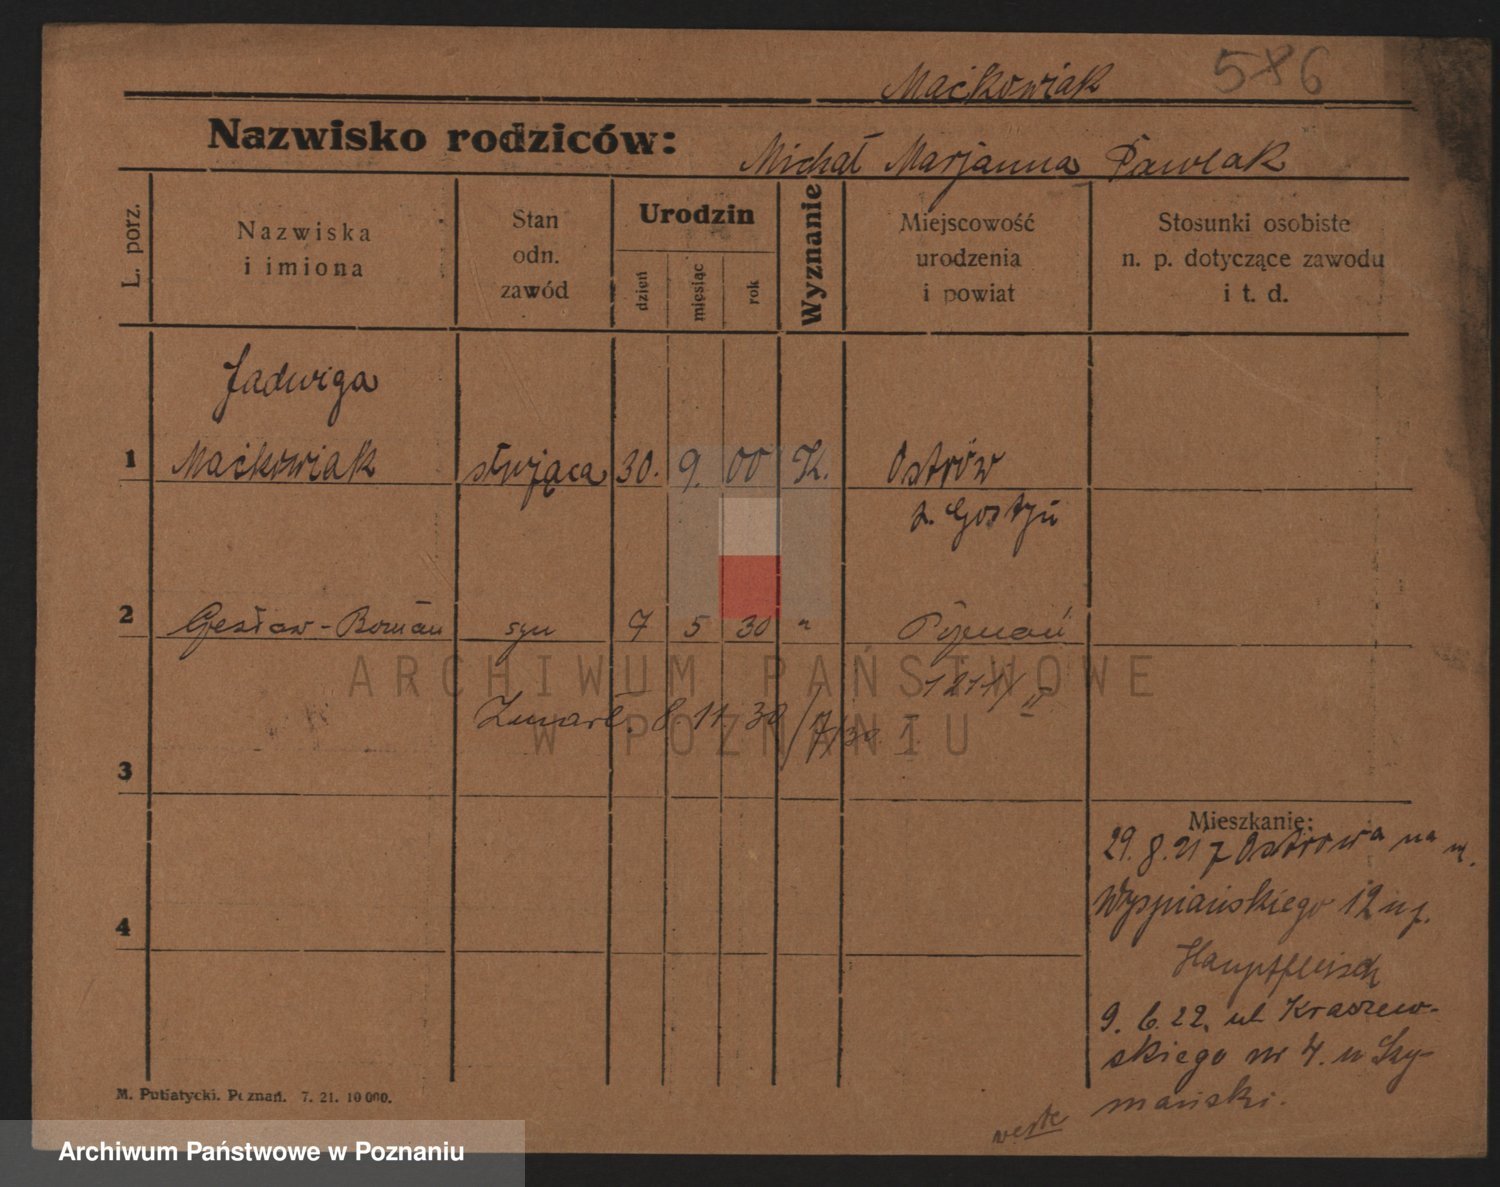 586
Maćkowiak
Nazwisko rodziców:
Michał Marjanna Pawlak
L. porz.
Nazwiska
i imiona
Stan
odn.
zawód
Urodzin
dzień
miesiąc
rok
Wyznanie
Miejscowość
urodzenia
i powiat
Stosunki osobiste
n. p. dotyczące zawodu
i t. d.
Jadwiga
1 Maćkowiak służąca 30. 9. 00 K. Ostrów
p. Gostyń
2 Czesław-Roman syn 7 5 30 " Poznań
Zmarł. 8 11 30
3
4
Mieszkanie:
29. 8. 21 z Ostrowa na
Wyspiańskiego 12
Hauptfleisch
9. 6. 22. ul Kraszew-
skiego nr 4. u Szy-
mański.
M. Putiatycki. Poznań. 7. 21. 10 000.
ARCHIWUM PAŃSTWOWE
W POZNANIU
Archiwum Państwowe w Poznaniu